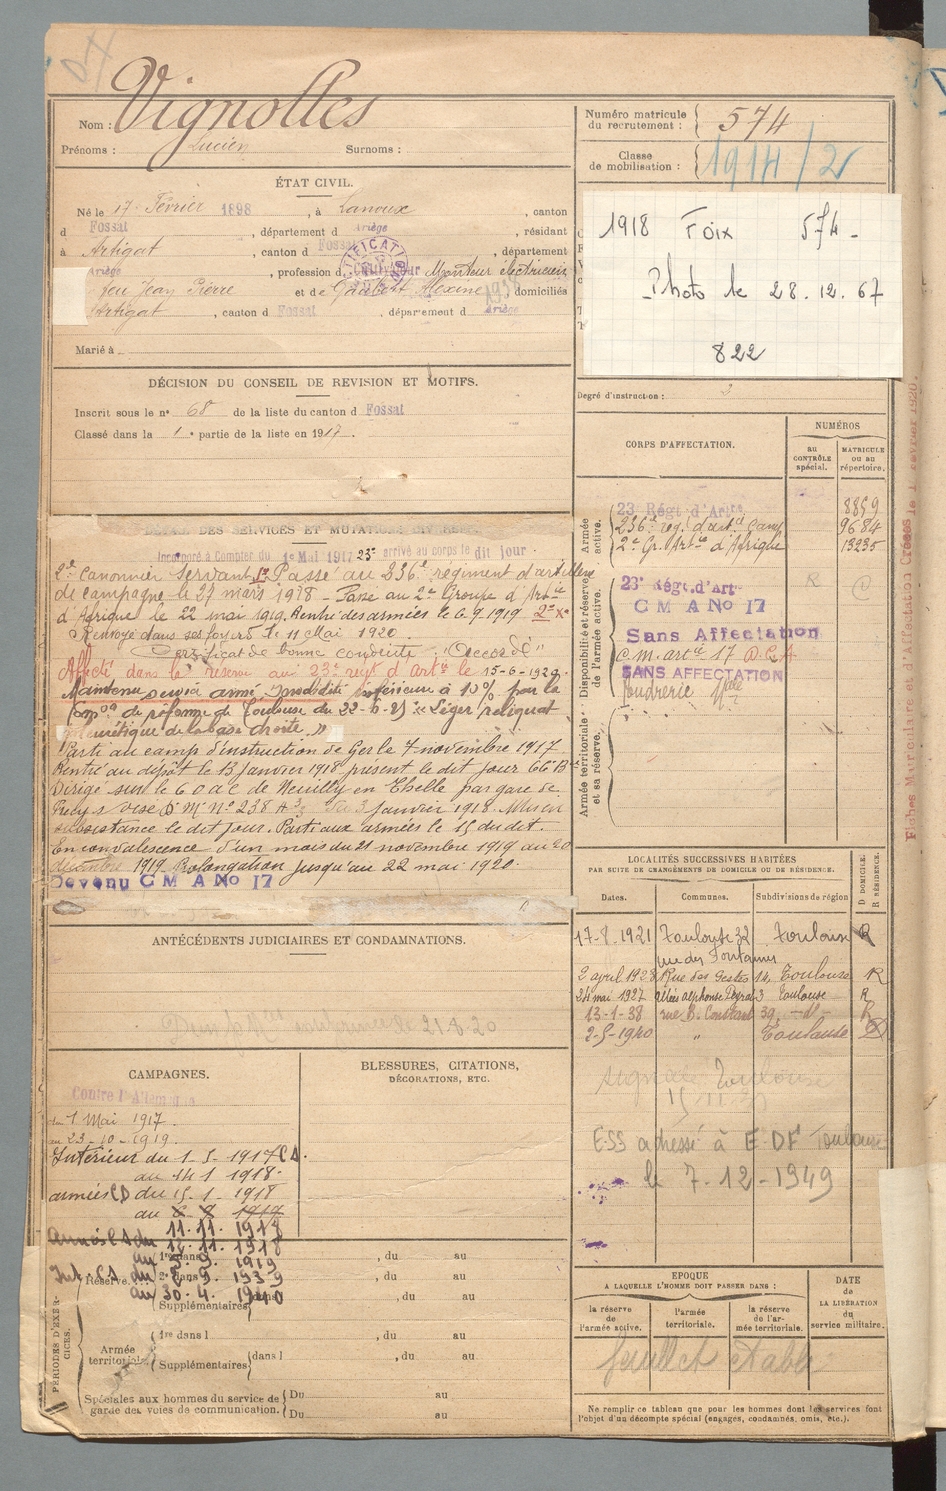 Nom : Vignolles
Prénoms : Lucien Surnoms :
ÉTAT CIVIL.
Né le 17 Février 1898, à Lanoux, canton
d Fossat, département d Ariège, résidant
à Artigat, canton d Fossat, département
Ariège, profession d Cultivateur Monteur électricien
feu Jean Pierre et de Gaubert Alexine domiciliés
Artigat, canton d Fossat, département d Ariège
Marié à
DÉCISION DU CONSEIL DE REVISION ET MOTIFS.
Inscrit sous le n° 68 de la liste du canton d Fossat
Classé dans la 1e partie de la liste en 1917.
DÉTAIL DES SERVICES ET MUTATIONS DIVERSES.
Incorporé à Compter du 1er Mai 1917 23e arrivé au corps le dit jour.
2e canonnier servant Passé au 236e régiment d'artillerie
de campagne le 27 mars 1918 - Passe au 2e Groupe d'Artie
d'Afrique le 22 mai 1919. Rentré des armées le 6.9.1919
Renvoyé dans ses foyers le 11 Mai 1920.
Certificat de bonne conduite : "Accordé"
Affecté dans la réserve au 23e régt d'Artie le 15-6-1920.
Maintenu service armé invalidité inférieure à 10% par la
de réforme de Toulouse du 22-6-25 "Léger reliquat
pleurétique de la base droite."
Parti au camp d'instruction de Ger le 7 novembre 1917
Rentré au dépôt le 13 janvier 1918 présent le dit jour 66e Bie
Dirigé sur le C O A C de Neuilly en Thelle par gare de
3 janvier 1918. Mis en
subsistance le dit jour. Parti aux armées le 15 du dit.
En convalescence d'un mois du 21 novembre 1919 au 20
décembre 1919 Prolongation jusqu'au 22 mai 1920.
Devenu C M A No 17
ANTÉCÉDENTS JUDICIAIRES ET CONDAMNATIONS.
21-8-20
CAMPAGNES.
Contre l'Allemagne
du 1 Mai 1917.
au 23-10-1919.
Intérieur du 1.5.1917 CS.
au 14 1 1918.
armées CD du 15.1.1918
au 6 9 1919
11.11.1918
Armées CS du 12.11.1918
au 5.9.1919
Int. CS du 2.9.1939
au 30.4.1940
BLESSURES, CITATIONS,
DÉCORATIONS, ETC.
PÉRIODES D'EXERCICES.
Réserve
1re dans l , du au
2e dans l , du au
Supplémentaires dans l , du au
Armée territoriale
1re dans l , du au
Supplémentaires dans l , du au
Spéciales aux hommes du service de garde des voies de communication.
Du au
Du au
Numéro matricule du recrutement : 574
Classe de mobilisation : 1914/2
1918 Foix 574 -
Photo le 28.12.67
822
Degré d'instruction : 3
CORPS D'AFFECTATION.
NUMÉROS
au CONTRÔLE spécial.
MATRICULE ou au répertoire.
Armée active.
23 Régt d'Artie 8859
236e rég. d'artie camp 9684
2e Gr. Artie d'Afrique 13235
Disponibilité et réserve de l'armée active.
23e Régt. d'Art
C M A No 17 R C
Sans Affectation
C m. artie 17 D.C.A
SANS AFFECTATION
Poudrerie Nale
Armée territoriale et sa réserve.
LOCALITÉS SUCCESSIVES HABITÉES
PAR SUITE DE CHANGEMENTS DE DOMICILE OU DE RÉSIDENCE.
Dates. Communes. Subdivisions de région D DOMICILE. R RÉSIDENCE.
17-8-1921 Toulouse 32 Toulouse R
rue des Fontaines
2 avril 1923 Rue des Gestes 14, Toulouse R
24 mai 1927 allées alphonse Peyrat 3 Toulouse R
13-1-38 rue B. Constant 39 -d°- R
2-5-1940 " Toulouse
signalé Toulouse
ESS adressé à E DF Toulouse
le 7-12-1949
EPOQUE
A LAQUELLE L'HOMME DOIT PASSER DANS :
la réserve de l'armée active.
l'armée territoriale.
la réserve de l'armée territoriale.
DATE DE LA LIBÉRATION du service militaire.
feuillet établi
Ne remplir ce tableau que pour les hommes dont les services font
l'objet d'un décompte spécial (engagés, condamnés, omis, etc.).